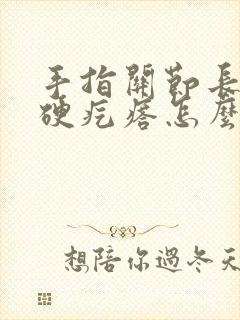 手指關節長
硬疙瘩怎麼
想陪你過冬天